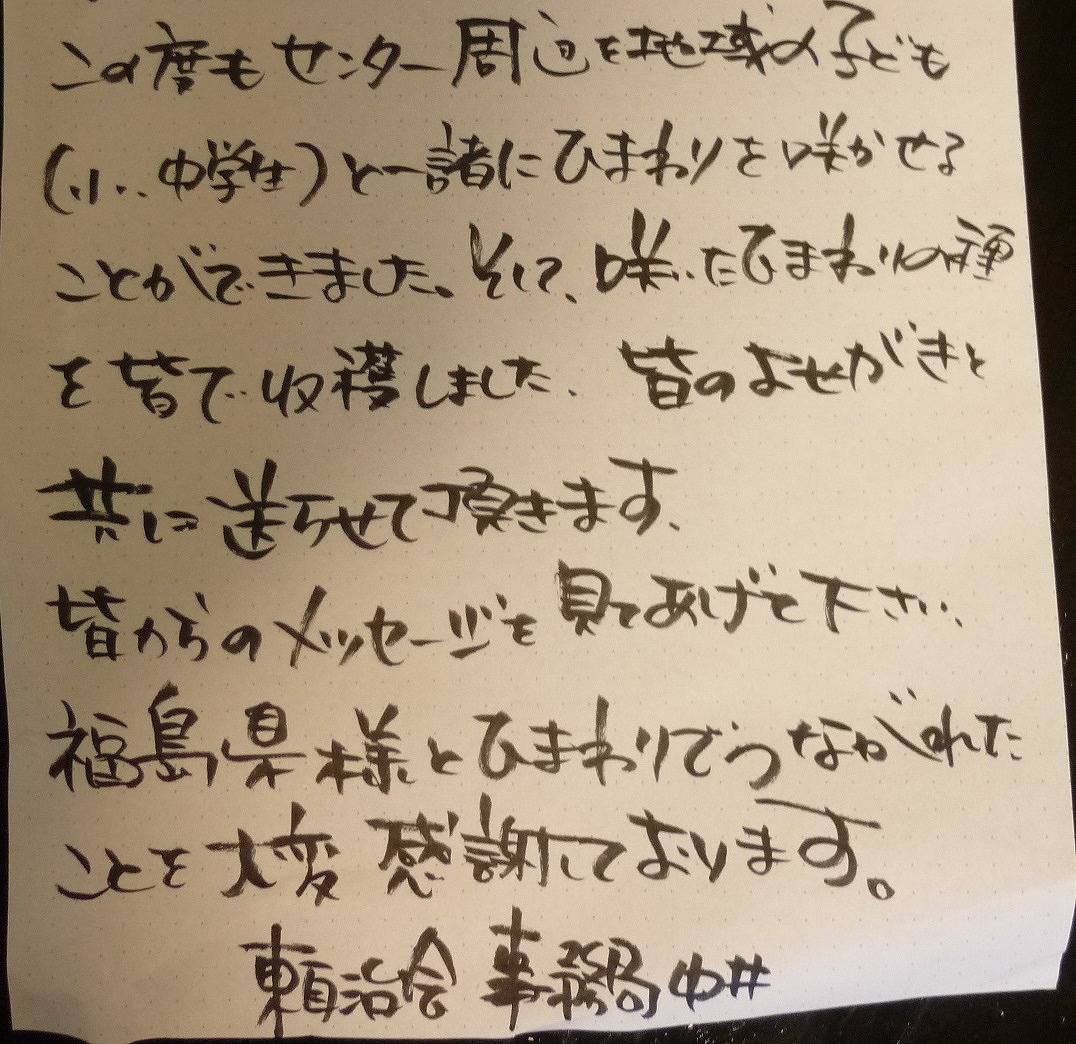 この度もセンター周辺を地域の子ども
(小・中学生)と一諸にひまわりを咲かせる
ことができました。そして、咲いたひまわりの種
を皆で収穫しました、皆のよせがきと
共に送らせて頂きます、
皆からのメッセージを見てあげて下さい、
福島県様とひまわりでつながれた
ことを大変感謝しております。
頼治会 事務局 中井